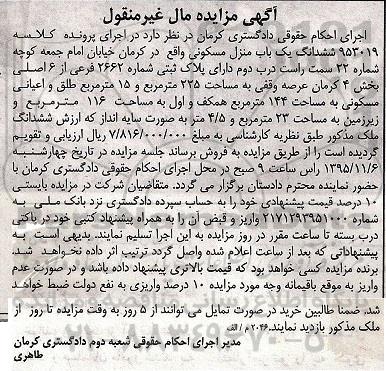 آگهی مزایده مال غیرمنقول
اجرای احکام حقوقی دادگستری کرمان در نظر دارد در اجرای پرونده کلاسه
۹۵۳۰۱۹ ششدانگ یک باب منزل مسکونی واقع در کرمان خیابان امام جمعه کوچه
شماره ۲۲ سمت راست درب دوم دارای پلاک ثبتی شماره ۲۶۶۲ فرعی از ۶ اصلی
بخش ۴ کرمان عرصه وقفی به مساحت ۲۲۵ مترمربع و ۱۵ مترمربع طلق و اعیانی
مسکونی به مساحت ۱۴۴ مترمربع همکف و اول به مساحت ۱۱۶ مترمربع و
زیرزمین به مساحت ۲۳ مترمربع و ۴/۵ متر به صورت سایه انداز که ارزش ششدانگ
ملک مذکور طبق نظریه کارشناسی به مبلغ ۷/۸۱۶/۰۰۰/۰۰۰ ریال ارزیابی و تقویم
گردیده است را از طریق مزایده به فروش برساند جلسه مزایده در تاریخ چهارشنبه
۱۳۹۵/۱۱/۶ راس ساعت ۹ صبح در محل اجرای احکام حقوقی دادگستری کرمان با
حضور نماینده محترم دادستان برگزار می گردد. متقاضیان شرکت در مزایده بایستی
۱۰ درصد قیمت پیشنهادی خود را به حساب سپرده دادگستری نزد بانک ملی به
شماره ۲۱۷۱۲۹۳۹۵۱۰۰۰ واریز و قبض آن را به همراه پیشنهاد کتبی خود در پاکتی
درب بسته تا ساعت مقرر در روز مزایده به این اجرا تسلیم نمایند. بدیهی است به
پیشنهاداتی که بعد از ساعت اعلام شده واصل گردد ترتیب اثر داده نخواهد شد.
برنده مزایده کسی خواهد بود که قیمت بالاتری پیشنهاد داده باشد و در صورت عدم
واریز به موقع باقیمانده وجه مورد مزایده ۱۰ درصد واریزی به نفع دولت ضبط خواهد
شد. ضمنا طالبین خرید در صورت تمایل می توانند از ۵ روز به وقت مزایده تا روز از
ملک مذکور بازدید نمایند. ۲۰۴۶ م / الف
مدیر اجرای احکام حقوقی شعبه دوم دادگستری کرمان
طاهری
۰۲۱-۸۸۳۴۹۶۷۰-۵